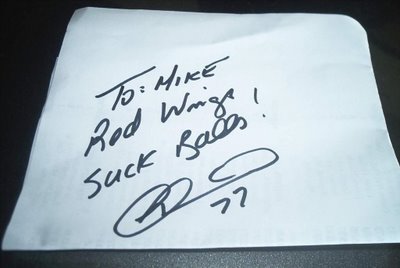 To: MIKE
Red Wings
Suck Balls!
77